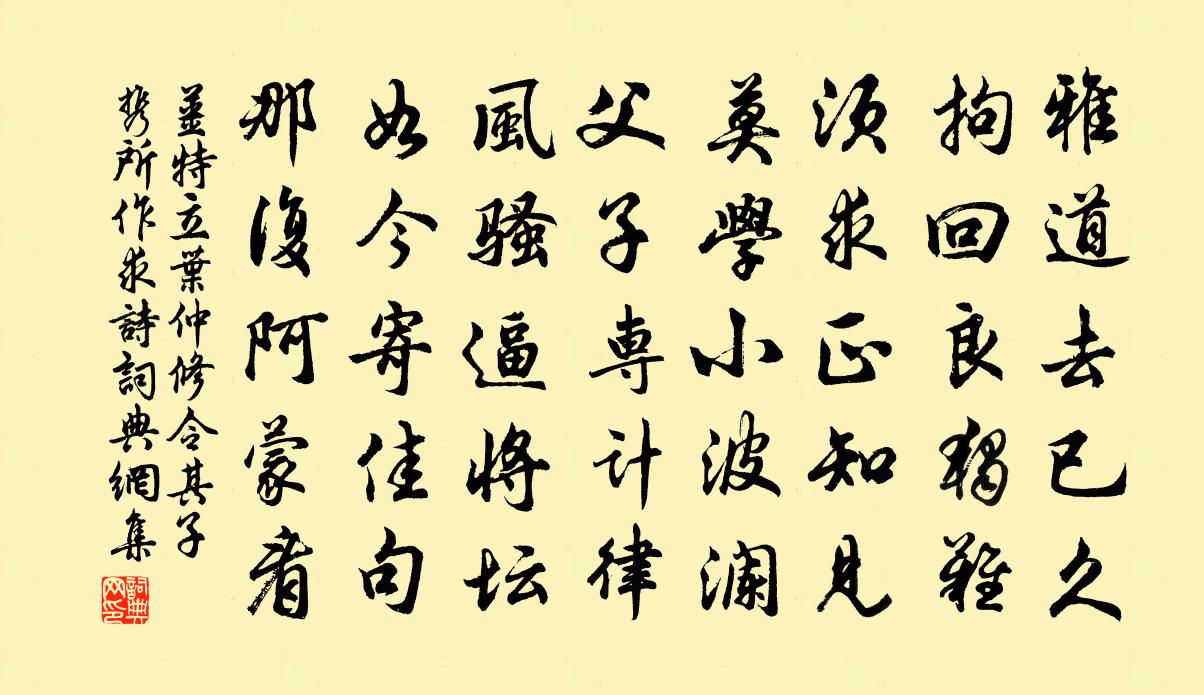 雅道去已久
拘回良獨難
須求正知見
莫學小波瀾
父子専計律
風騷逼將坛
如今寄佳句
那復阿蒙看
薑特立葉仲修令其子
携所作求詩詞典網集
詞典网印